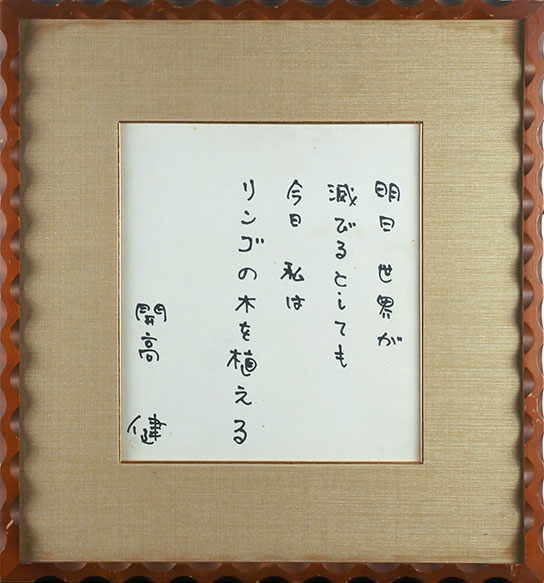 明日 世界が
滅びるとしても
今日 私は
リンゴの木を植える
開高 健